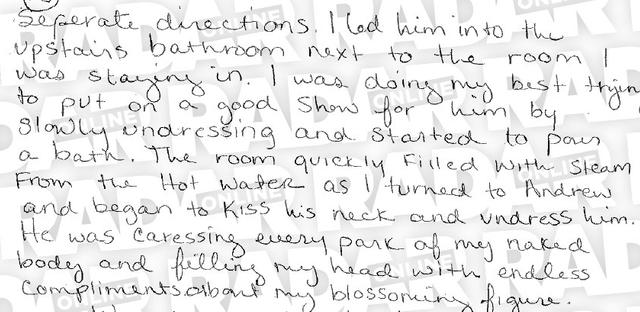 Seperate directions. I led him into the
upstairs bathroom next to the room I
was staying in. I was doing my best tryin
to put on a good show for him by
slowly undressing and started to pour
a bath. The room quickly filled with steam
From the Hot water as I turned to Andrew
and began to Kiss his neck and undress him.
He was caressing every park of my naked
body and filling my head with endless
compliments about my blossoming figure.
RADAR
ONLINE